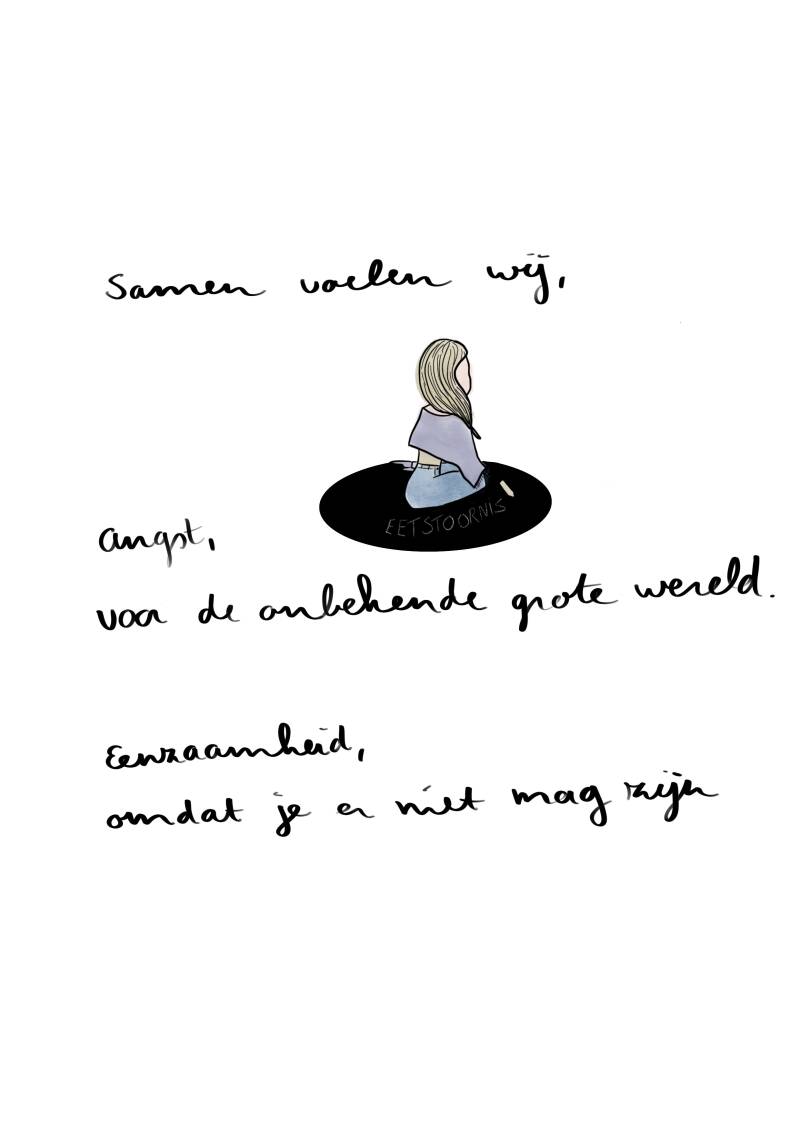 Samen voelen wij,
EETSTOORNIS
angst,
voor de onbekende grote wereld.
Eenzaamheid,
omdat je er niet mag zijn